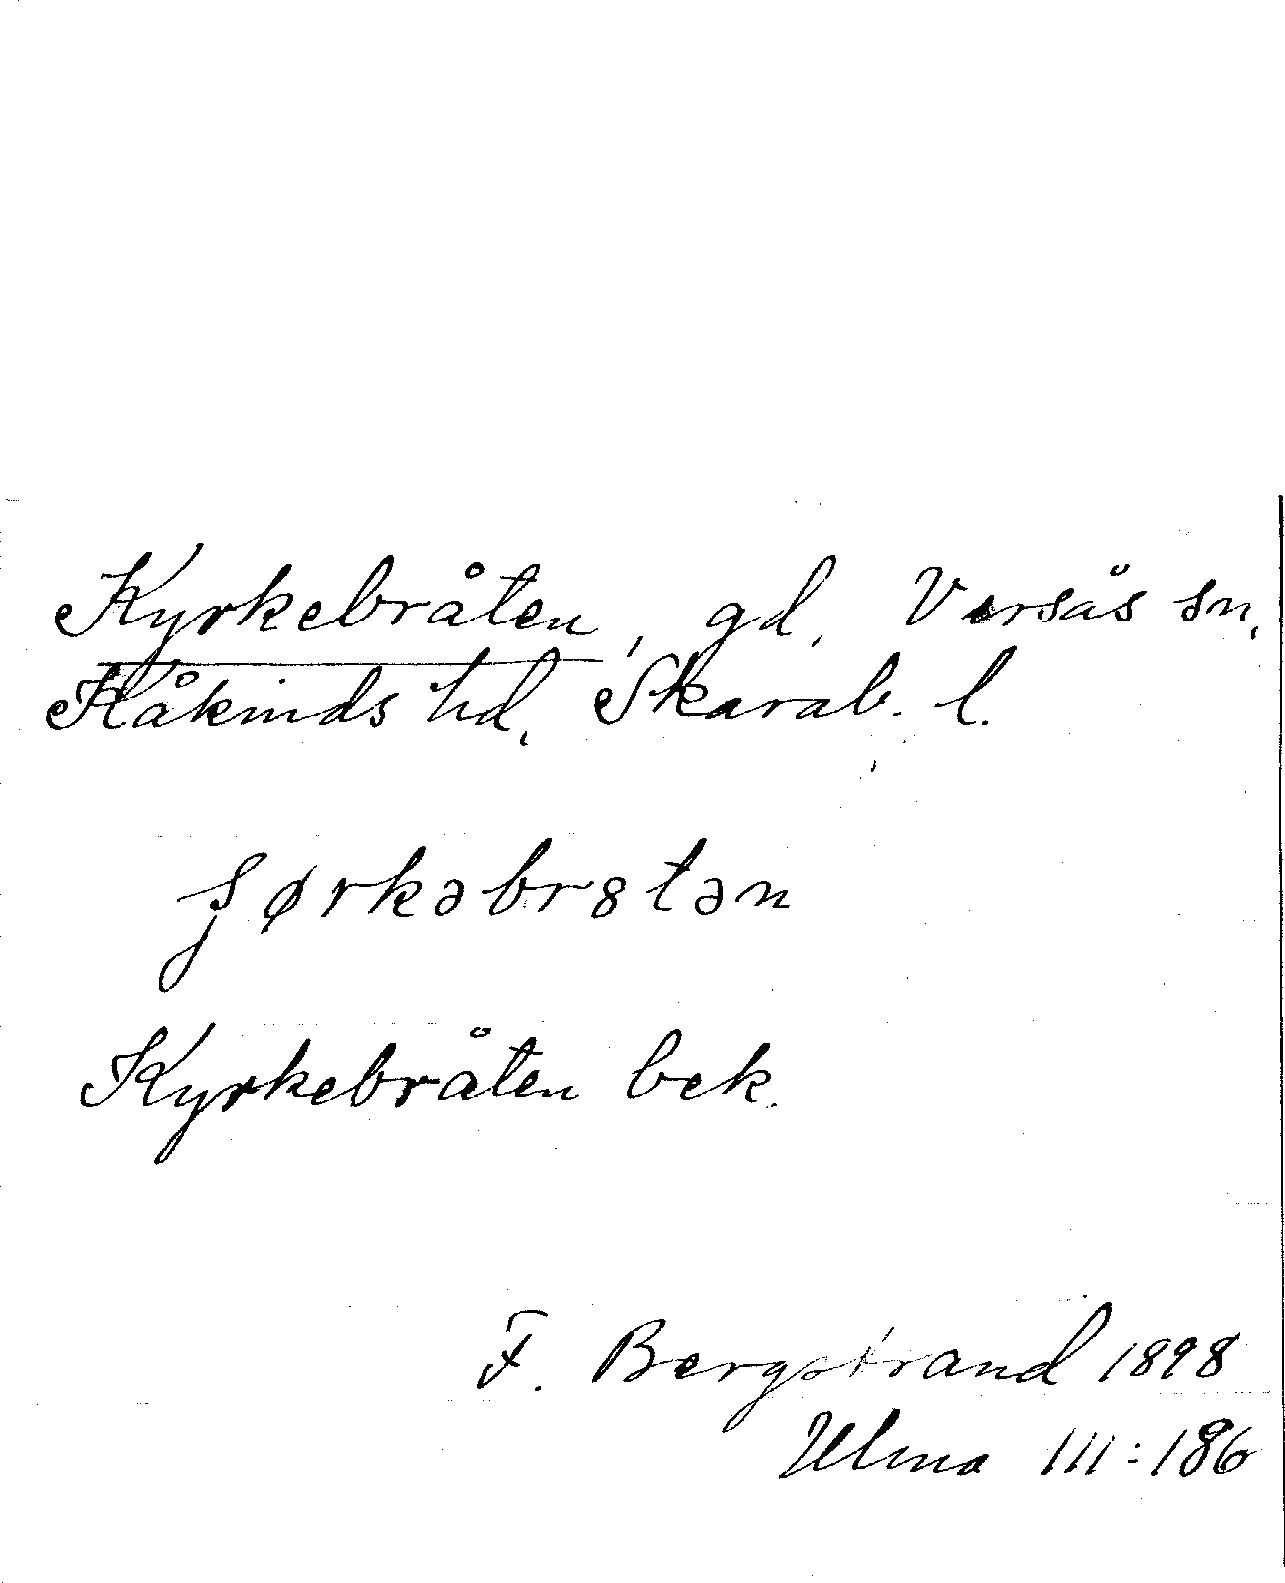 Kyrkebråten, gd, Versås sn,
Kåkinds hd, Skarab. l.
ʂørkəbr8tən
Kyrkebråten bek.
F. Bergstrand 1898
Ulma III:186